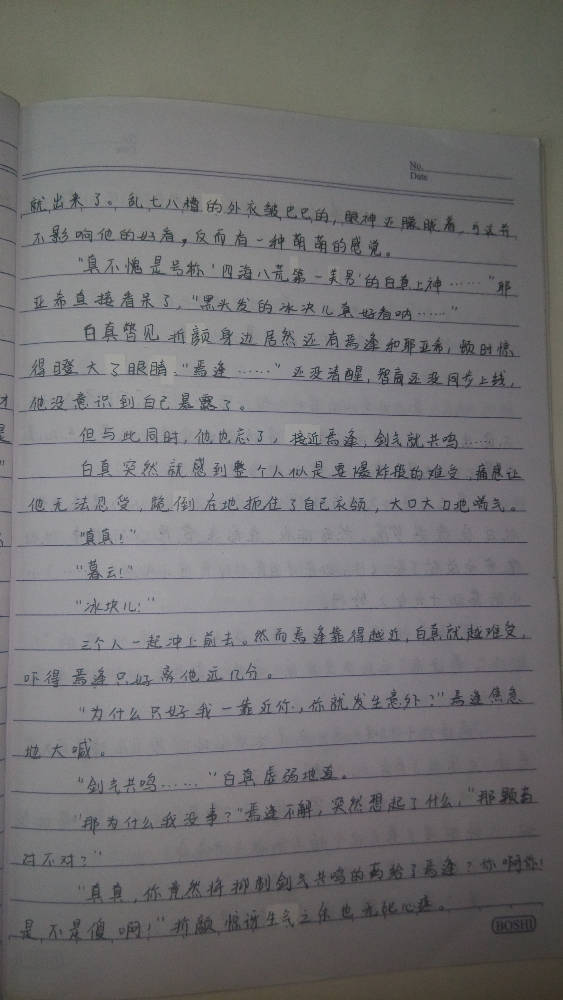 No.
Date
就出来了。乱七八糟的外衣皱巴巴的,眼神还朦胧着,可这并
不影响他的好看,反而有一种萌萌的感觉。
“真不愧是号称‘四海八荒第一美男’的白真上神……”耶
亚希直接看呆了,“黑头发的冰块儿真好看呐……”
白真瞥见折颜身边居然还有焉逢和耶亚希,顿时惊
得瞪大了眼睛:“焉逢……”还没清醒,智商还没同步上线,
他没意识到自己暴露了。
但与此同时,他也忘了,接近焉逢,剑气就共鸣……
白真突然就感到整个人似是要爆炸般的难受,痛感让
他无法忍受,跪倒在地扼住了自己衣领,大口大口地喘气。
“真真!”
“暮云!”
“冰块儿!”
三个人一起冲上前去。然而焉逢靠得越近,白真就越难受,
吓得焉逢只好离他远几分。
“为什么只好我一靠近你,你就发生意外?”焉逢焦急
地大喊。
“剑气共鸣……”白真虚弱地道。
“那为什么我没事?”焉逢不解,突然想起了什么,“那颗药
对不对?”
“真真,你竟然将抑制剑气共鸣的药给了焉逢?你啊你!
是不是傻啊!”折颜惊讶生气之余也无比心疼。
BOSHI